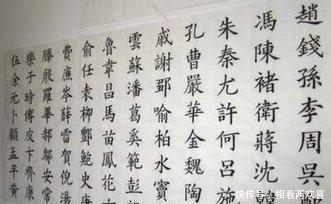 趙錢孫李周吳
馮陳褚衛蔣沈
朱秦尤許何呂施
孔曹嚴華金魏陶
戚謝鄒喻柏水竇
雲蘇潘葛奚範彭
魯韋昌馬苗鳳花
俞任袁柳酆鮑史唐
費廉岑薛雷賀倪湯
滕殷羅畢郝鄔安常
樂于時傅皮卞齊康
伍余元卜顧孟平黃
快传号/相看两欢喜